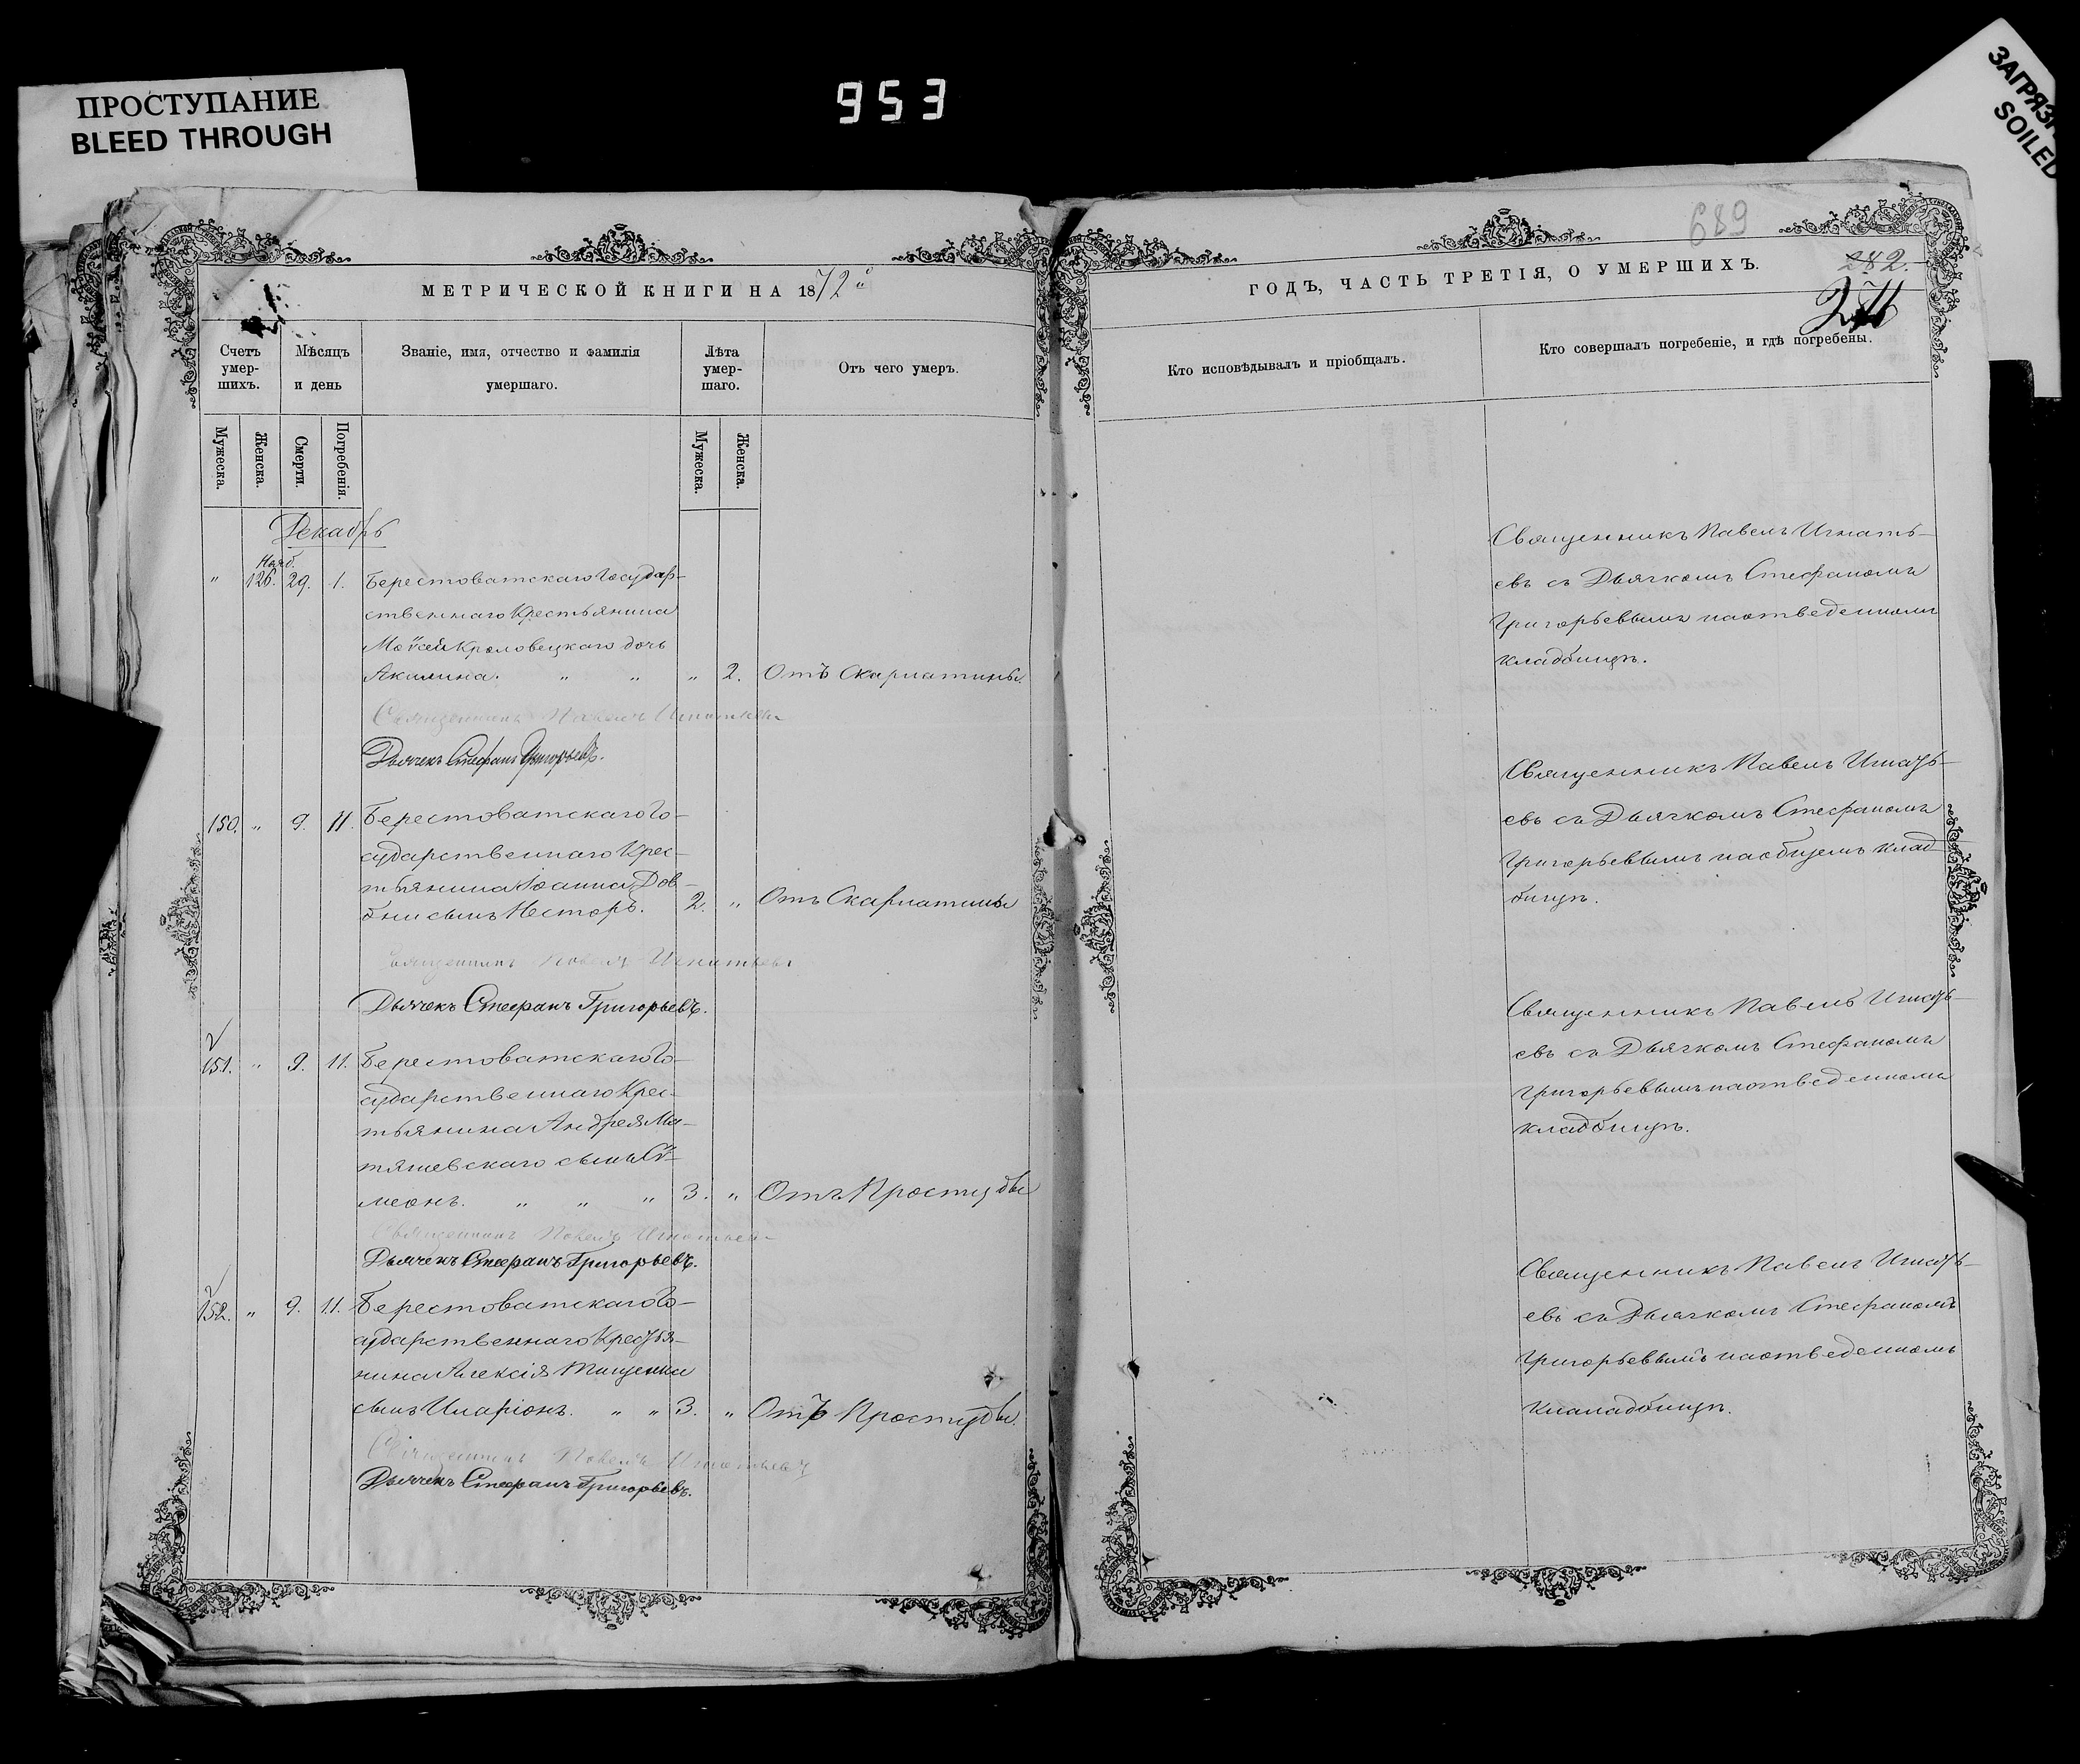 ПРОСТУПАНИЕ
BLEED THROUGH
953
SOILED
689
МЕТРИЧЕСКОЙ КНИГИ НА 1872й
ГОДЪ, ЧАСТЬ ТРЕТІЯ, О УМЕРШИХЪ.
282.
Счетъ умер-шихъ.
Мѣсяцъ и день
Званіе, имя, отчество и фамилія умершаго.
Лѣта умер-шаго.
Отъ чего умеръ.
Кто исповѣдывалъ и пріобщалъ.
Кто совершалъ погребеніе, и гдѣ погребены.
Мужеска.
Женска.
Смерти.
Погребенія.
Мужеска.
Женска.
Декабрь
Нояб.
" 126. 29. 1. Берестоватскаго Государ-
ственнаго Крестьянина
Кроловецкаго дочь
Акилина. " " " 2. Отъ Скарлатины.
Священникъ Павелъ Игнатьевъ
Дьячекъ Стефанъ Григорьевъ.
Священникъ Павелъ Игнать-
евъ съ Дьячкомъ Стефаномъ
Григорьевымъ на отведенномъ
кладбищѣ.
150. " 9. 11. Берестоватскаго Го-
сударственнаго Крес-
тьянина Іоанна Дов-
бни сынъ Несторъ. 2. " Отъ Скарлатины
Священникъ Павелъ Игнатьевъ
Дьячекъ Стефанъ Григорьевъ.
Священникъ Павелъ Игнать-
евъ съ Дьячкомъ Стефаномъ
Григорьевымъ на общемъ клад-
бищѣ.
151. " 9. 11. Берестоватскаго Го-
сударственнаго Крес-
тьянина Андрея Ма-
тяшевскаго сынъ Сѵ-
меонъ. " " " 3. " Отъ Простуды
Священникъ Павелъ Игнатьевъ
Дьячекъ Стефанъ Григорьевъ.
Священникъ Павелъ Игнать-
евъ съ Дьячкомъ Стефаномъ
Григорьевымъ на отведенномъ
кладбищѣ.
152. " 9. 11. Берестоватскаго Го-
сударственнаго Крестья-
нина Алексія Тищенка
сынъ Иларіонъ. " " 3. " Отъ Простуды.
Священникъ Павелъ Игнатьевъ
Дьячекъ Стефанъ Григорьевъ.
Священникъ Павелъ Игнать-
евъ съ Дьячкомъ Стефаномъ
Григорьевымъ на отведенномъ
кналадбищѣ.